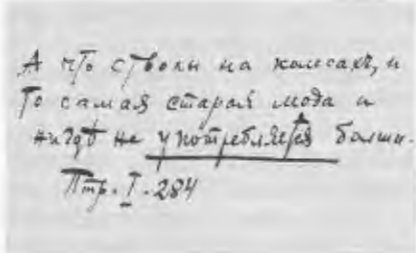 А что стволы на колесахъ, и
то самая старая мода и
нигдѣ не употребляется больши.
Птр. I. 284